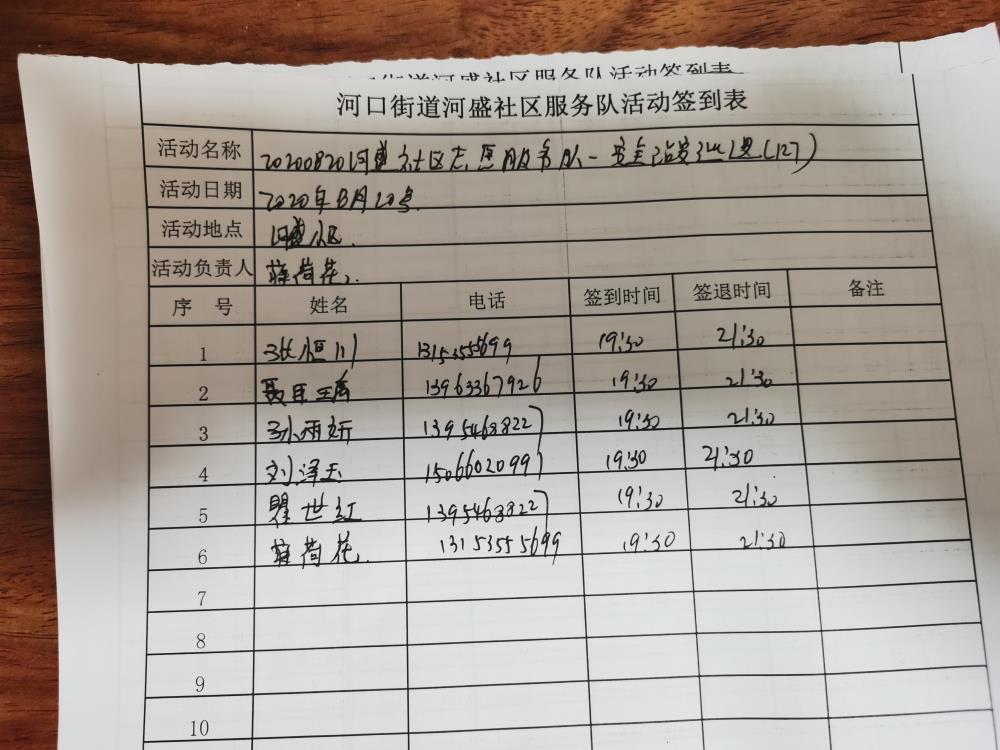 街道河盛社区服务队活动签到表
河口街道河盛社区服务队活动签到表
活动名称 20200820河盛社区志愿服务队-安全治安巡逻(127)
活动日期 2020年8月20号.
活动地点 河盛小区.
活动负责人 薛荷花
序 号 姓名 电话 签到时间 签退时间 备注
1 张恒川 13153555699 19:30 21:30
2 13963367926 19:30 21:30
3 孙雨妍 13954688227 19:30 21:30
4 刘泽玉 15066020997 19:30 21:30
5 瞿世红 13954688227 19:30 21:30
6 薛荷花. 13153555699 19:30 21:30
7
8
9
10